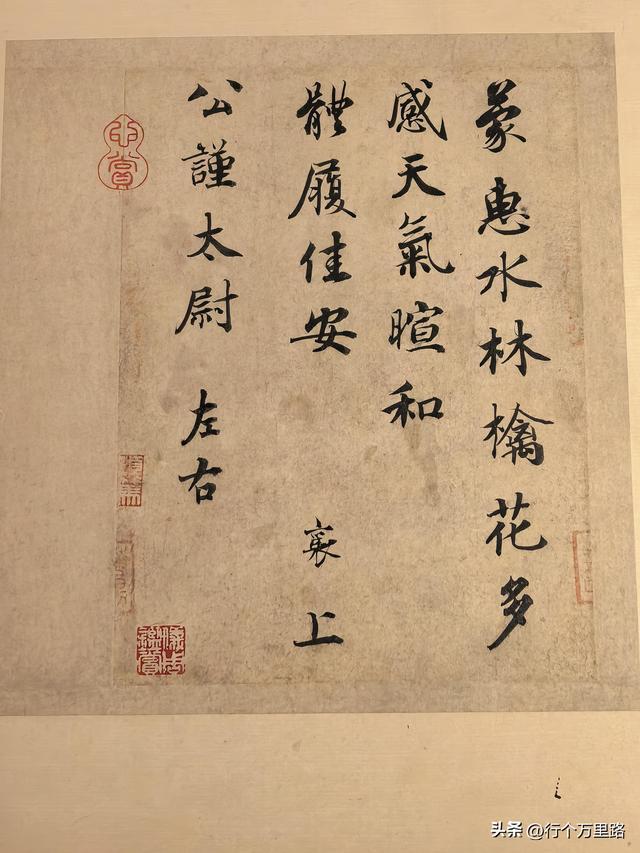 蒙惠水林檎花多
感天氣暄和
體履佳安
襄上
公謹太尉 左右
头条 @行个万里路